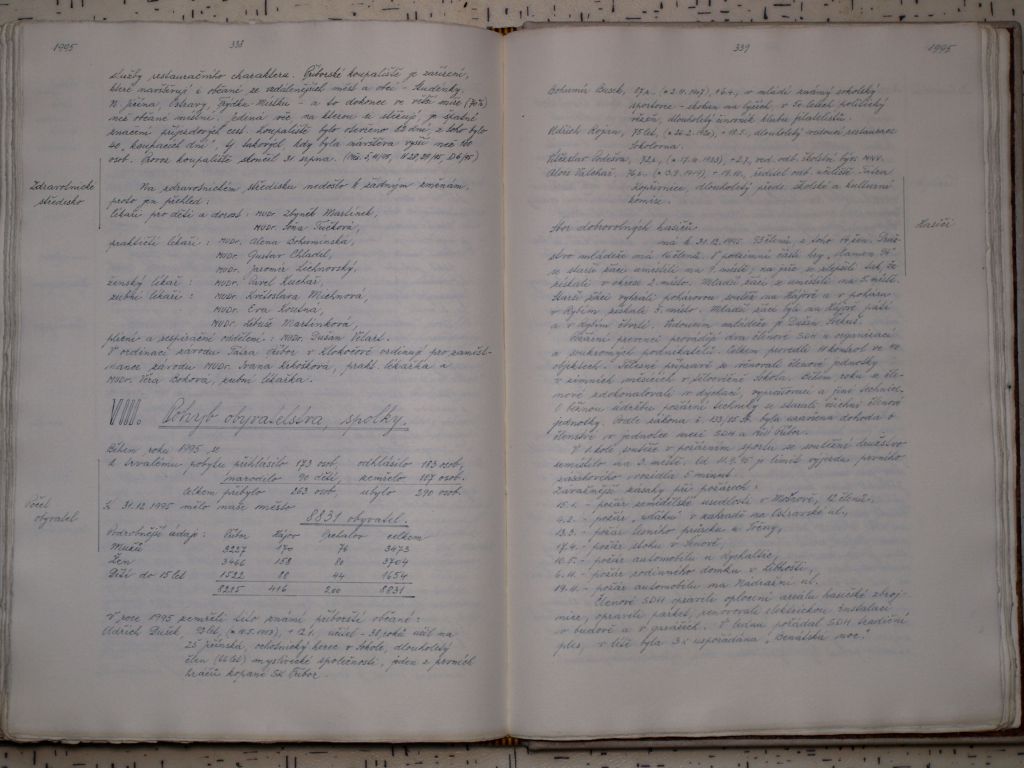 1995
338
služby restauračního charakteru. Příborské koupaliště je zařízení,
které navštěvují i občané ze vzdálenějších měst a obcí - Studénky,
N. Jičína, Ostravy, Frýdku-Místku - a to dokonce ve větší míře (70%)
než občané místní. Jediná věc, na kterou si stěžují, je špatné
značení příjezdových cest. Koupaliště bylo otevřeno 83 dní, z toho bylo
40 "koupacích dní", tj. takových, kdy byla návštěva vyšší než 100
osob. Provoz koupaliště skončil 31. srpna.
Zdravotnické
středisko
Na zdravotnickém středisku nedošlo k žádným změnám,
proto jen přehled:
lékaři pro děti a dorost: MUDr. Zbyněk Martínek,
MUDr. Soňa Tučková,
praktičtí lékaři: MUDr. Alena Bohumínská,
MUDr. Gustav Chládel,
MUDr. Jaromír Lichnovský,
ženský lékař: MUDr. Pavel Kuchař,
zubní lékaři: MUDr. Květoslava Michnová,
MUDr. Eva Koubná,
MUDr. Libuše Martínková,
plicní a respirační oddělení: MUDr. Dušan Vělart.
V ordinaci závodu Tatra Příbor v Klokočově ordinují pro zaměst-
nance závodu MUDr. Ivana Krbošková, prakt. lékařka a
MUDr. Věra Boková, zubní lékařka.
VIII. Pohyb obyvatelstva, spolky.
Během roku 1995 se
k trvalému pobytu přihlásilo 173 osob, odhlásilo 183 osob,
narodilo 90 dětí, zemřelo 107 osob.
celkem přibylo 263 osob, ubylo 290 osob.
Počet
obyvatel
K 31.12.1995 mělo naše město
8831 obyvatel.
Podrobnější údaje: Příbor Hájov Prchalov celkem
Mužů 3227 170 76 3473
Žen 3466 158 80 3704
Dětí do 15 let 1522 88 44 1654
8215 416 200 8831
V roce 1995 zemřeli tito známí příborští občané:
Oldřich Dušek, 93 let, + 12.1., učitel - 38 roků učil na
ZŠ Jičínská, ochotnický herec v Sokole, dlouholetý
člen mystrické společnosti, jeden z prvních
hráčů kopané SK Příbor.
339
1995
Bohumír Busek, 87 r., v mládí známý sokolský
sportovec - skokan na lyžích, v 50. letech politický
vězeň, dlouholetý úinovník klubu filatelistů.
Oldřich Bojan, 75 let, + 18.5., dlouholetý vedoucí restaurace
Sokolovna.
Vítězslav Podešva, 72 r., + 2.7., ved. odb. školství býv. MNV.
Alois Valchař, 76 r., + 19.10., ředitel odb. učiliště Tatra
Kopřivnice, dlouholetý předs. školské a kulturní
komise.
Hasiči
Sbor dobrovolných hasičů
má k 31.12.1995 93 členů, z toho 19 žen. Druž-
stvo mládeže má 16 členů. V podzimní části hry "Plamen 94"
se starší žáci umístili na 7. místě, na jaře se zlepšili tak, že
získali v okrese 2. místo. Mladší žáci se umístili na 5. místě.
Starší žáci vyhráli pohárovou soutěž na Hájově a v poháru
v Rybím získali 3. místo. Mladší žáci byli na Hájově pátí
a v Rybím čtvrtí. Vedoucím mládeže je Dušan Sekus.
Požární prevenci provádějí dva členové SDH u organizací
a soukromých podnikatelů. Celkem provedli 11 kontrol ve 40
objektech. Tělesné přípravě se věnovali členové jednotky
v zimních měsících v tělocvičně Sokola. Během roku se čle-
nové zdokonalovali v dýchací, vyprošťovací a jiné technice.
O běžnou údržbu požární techniky se starali všichni členové
jednotky. Podle zákona č. 133/85 Sb. byla uzavřena dohoda o
členství v jednotce mezi SDH a MÚ Příbor.
V 1. kole soutěže v požárním sportu se soutěžní družstvo
umístilo na 3. místě. Od 11.9.95 je limit výjezdu prvního
zásahového vozidla 5 minut.
Závažnější zásahy při požárech:
15.1. - požár zemědělské usedlosti v Mošnově, 12 členů,
4.2. - požár "vdíků" v zahradě na Ostravské ul.,
13.3. - požár lesního průseku u Trčny,
17.4. - požár stohu v Skorotíně,
10.5. - požár automobilu u Rychaltic,
6.11. - požár rodinného domku v Libhošti,
19.11. - požár automobilu na Nádražní ul.
Členové SDH opravili oplocení areálu hasičské zbroj-
nice, opravili parket, renovovali elektrickou instalaci
v budově a v garážích. V lednu pořádal SDH tradiční
ples, v létě byla 3x uspořádána "Benátská noc".